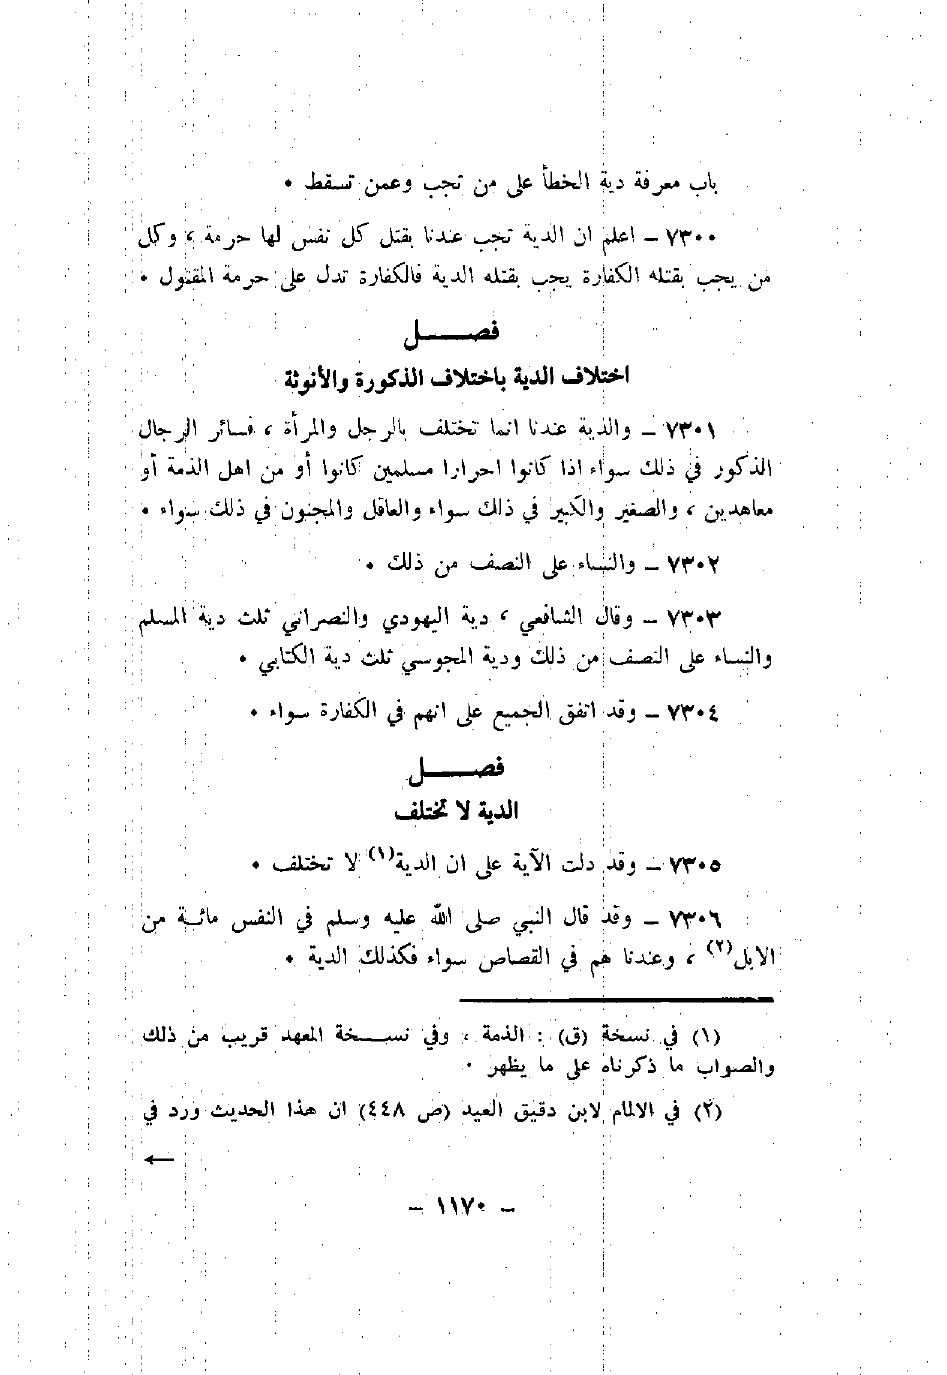 باب معرفة دية الخطأ على من تجب وعمن تسقط •
٧٣٠٠ – اعلم ان الدية تجب عندنا بقتل كل نفس لها حرمة ، وكل
من يجب بقتله الكفارة يجب بقتله الدية فالكفارة تدل على حرمة المقتول •
فصـــــل
اختلاف الدية باختلاف الذكورة والأنوثة
٧٣٠١ – والدية عندنا انما تختلف بالرجل والمرأة ، فسائر الرجال
الذكور في ذلك سواء اذا كانوا احرارا مسلمين كانوا أو من اهل الذمة أو
معاهدين ، والصغير والكبير في ذلك سواء والعاقل والمجنون في ذلك سواء •
٧٣٠٢ – والنساء على النصف من ذلك •
٧٣٠٣ – وقال الشافعي ، دية اليهودي والنصراني ثلث دية المسلم
والنساء على النصف من ذلك ودية المجوسي ثلث دية الكتابي •
٧٣٠٤ – وقد اتفق الجميع على انهم في الكفارة سواء •
فصـــــل
الدية لا تختلف
٧٣٠٥ – وقد دلت الآية على ان الدية(١) لا تختلف •
٧٣٠٦ – وقد قال النبي صلى الله عليه وسلم في النفس مائـة من
الابل(٢) ، وعندنا هم في القصاص سواء فكذلك الدية •
(١) في نسخة (ق) : الذمة ، وفي نســـخة المعهد قريب من ذلك
والصواب ما ذكرناه على ما يظهر •
(٢) في الالمام لابن دقيق العيد (ص ٤٤٨) ان هذا الحديث ورد في
←
– ١١٧٠ –